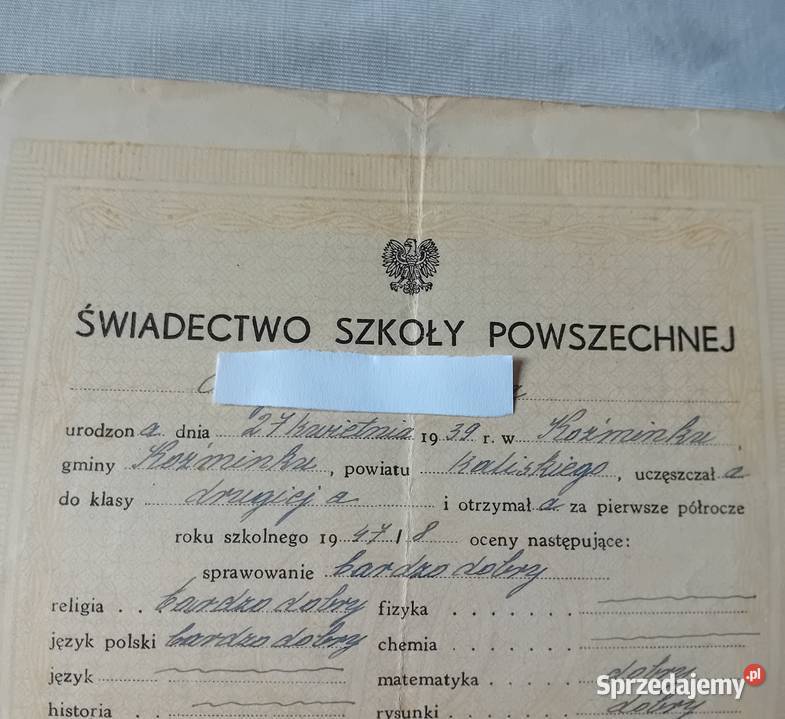 ŚWIADECTWO SZKOŁY POWSZECHNEJ
urodzona dnia 27 kwietnia 1939 r. w Koźminku,
gminy Koźminku, powiatu Kaliskiego, uczęszczała
do klasy drugiej a i otrzymała za pierwsze półrocze
roku szkolnego 1947/8 oceny następujące:
sprawowanie bardzo dobry
religia . . bardzo dobry fizyka . . . . . . .
język polski bardzo dobry chemia . . . . . .
język matematyka . . . . dobry
historia . . rysunki . . . . . dobry
Sprzedajemy.pl